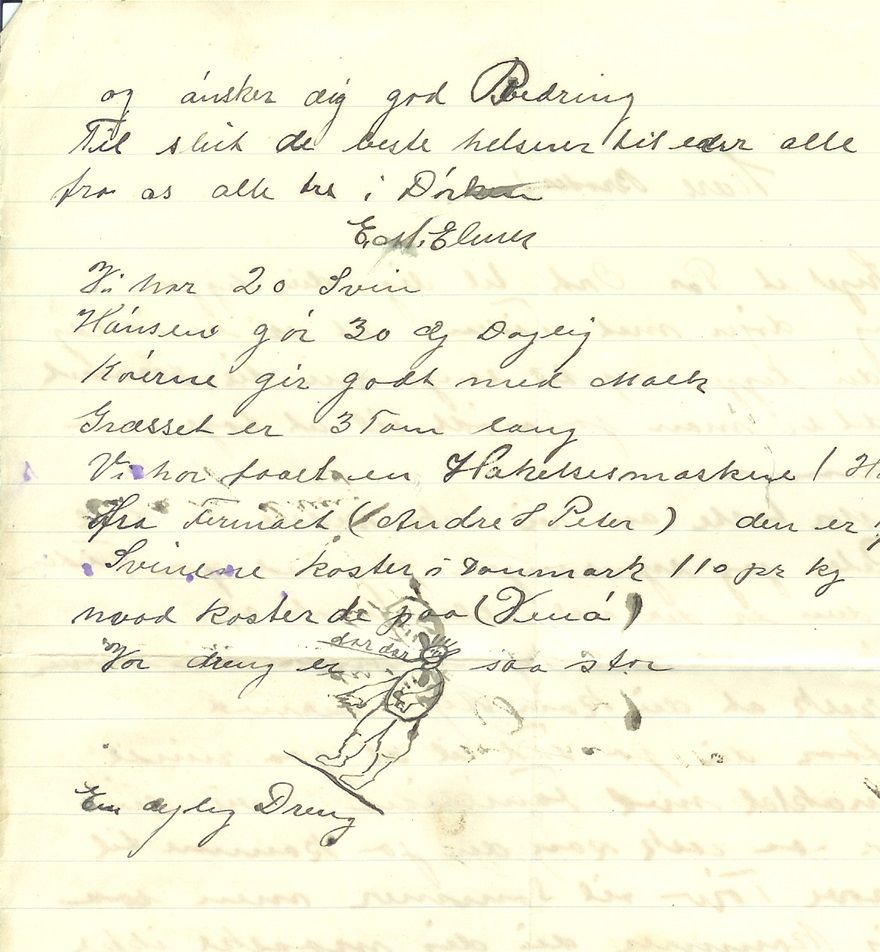 og ánsker dig god Bedring
Til slut de beste helsener til eder alle
fra os alle tre i Dórken
E. M. Elmer
Vi har 20 Svin
Hánsene gór 30 Æg Daglig
Kóerne gir godt med Malk
Græsset er 3 Tom lang
Vi har faaet en Hakelsesmaskine
fra Firmaet (Andre S Peter) den er
Svinene koster i Danmark 110 pr kg
hvad koster de paa (Venó)
Vor dreng er saa stor
dar dar
En dejlig Dreng